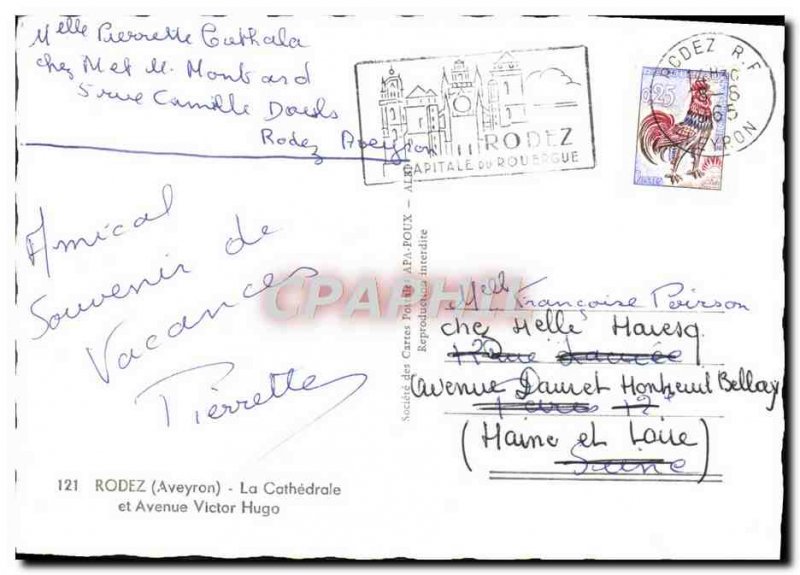 Melle Pierrette Cathala
chez Met M. Monbard
5 rue Camille Douls
Rodez Aveyron
RODEZ
CAPITALE DU ROUERGUE
RODEZ R.P.
6
65
AVEYRON
0,25
Amical
Souvenir de
Vacances
Pierrette
CPAPHIL
Société des Cartes Postales APA-POUX - ALBI
Reproduction interdite
Melle Françoise Poirson
chez Melle Havesq
avenue Dauvet Montreuil Bellay
Paris 12e
(Maine et Loire)
Seine
121 RODEZ (Aveyron) - La Cathédrale
et Avenue Victor Hugo